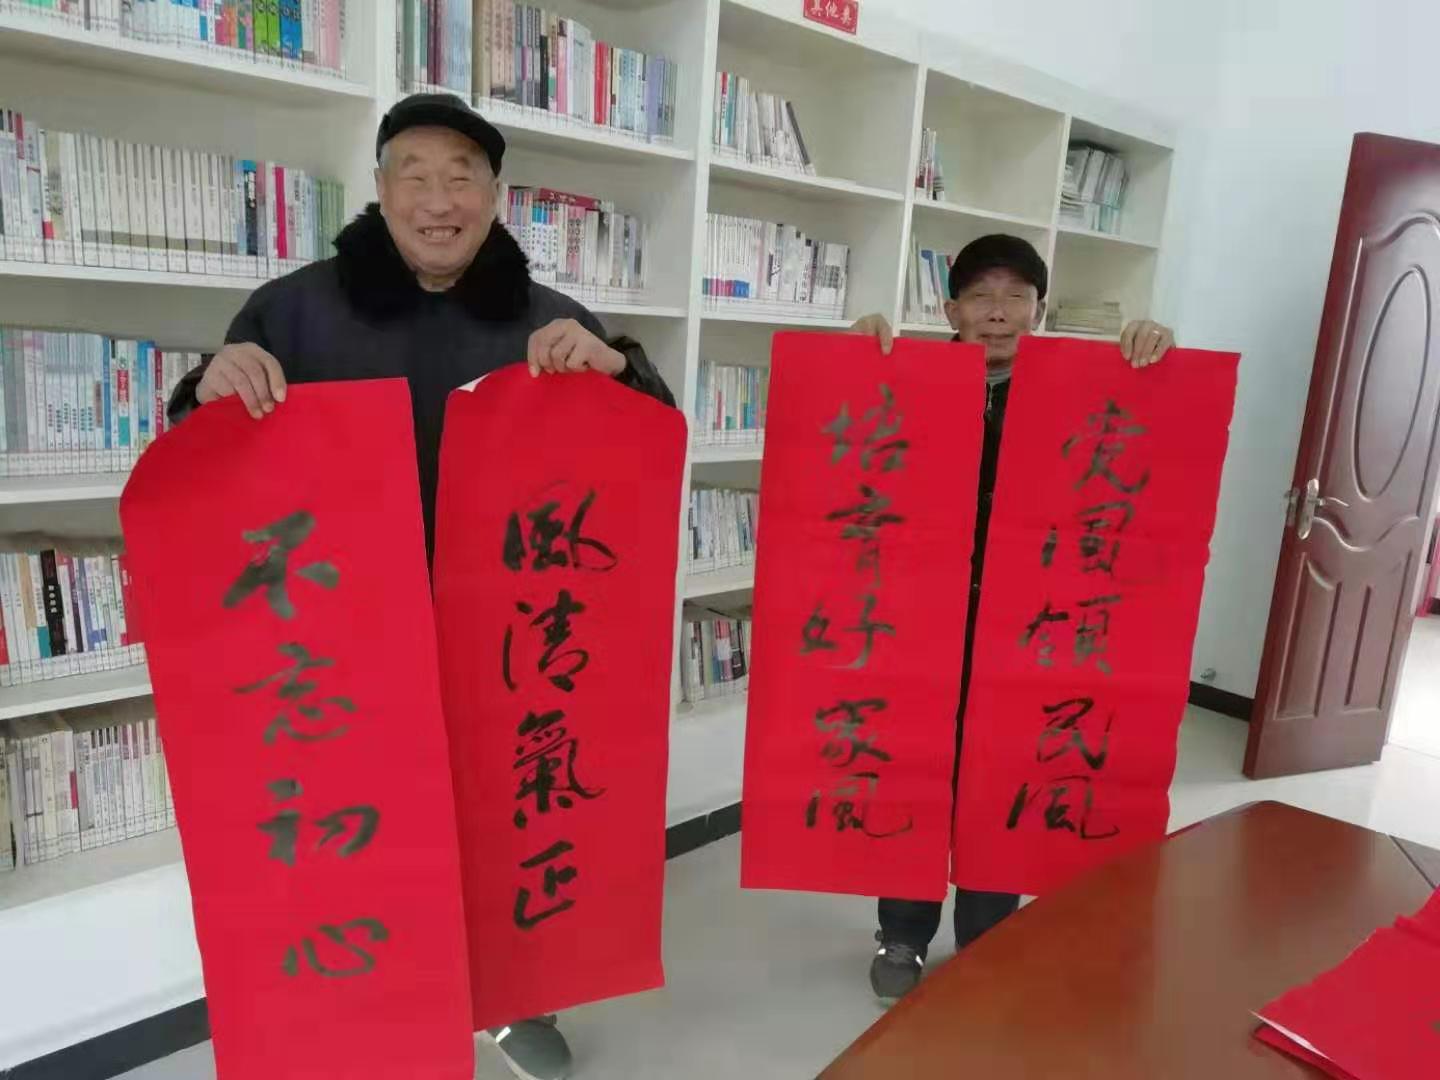 其他类
不忘初心
風清氣正
培育好家風
党風領民風